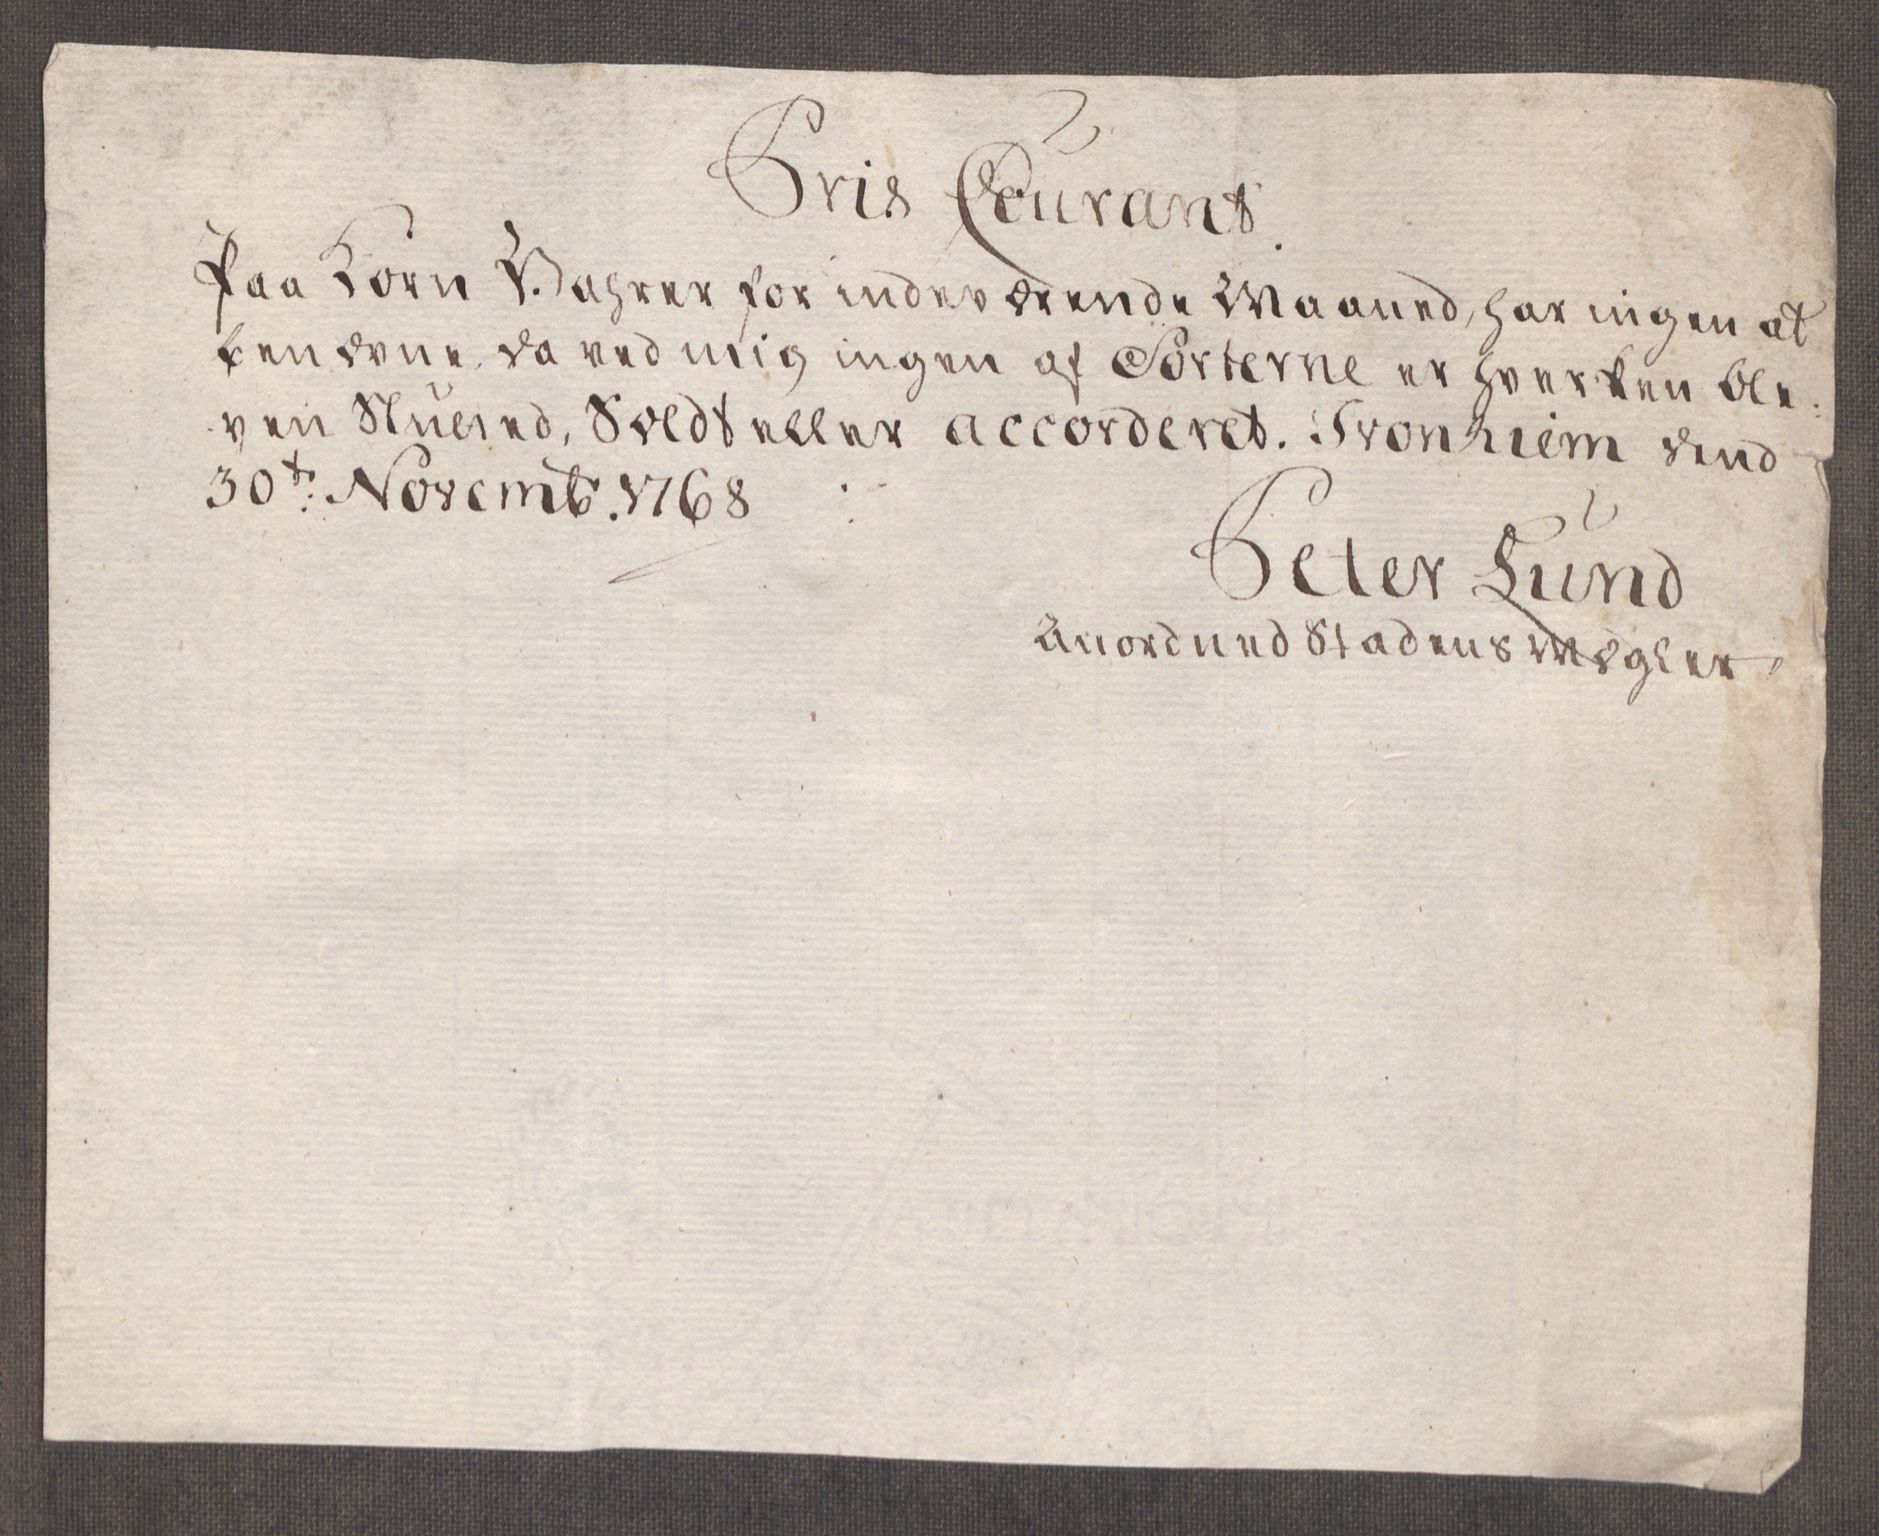 Pris Courant
Paa Korn Vahrer for indeværende Maaned, har ingen at
benævne, da ved mig ingen af Sorterne er hverken ble-
ven Sluted, Soldt eller accorderet. Tronhiem dend
30t. Novemb. 1768
Peter Lund
Anordned Stadens Mægler